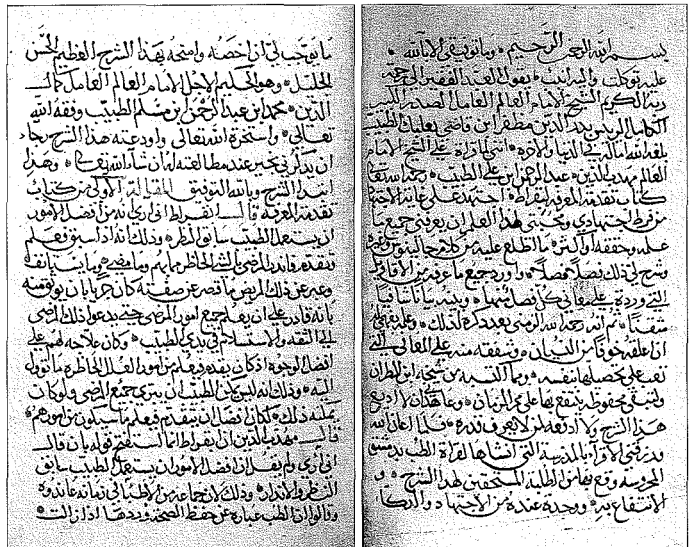 بسم الله الرحمن الرحيم وما توفيقي الا بالله
عليه توكلت واليه انيب يقول العبد الفقير الى رحمة
ربه الكريم الشيخ الامام العالم العامل الصدر الكبير
الكامل الرييس بدر الدين مظفر ابن قاضي بعلبك الطبيب
بلغه الله اماله في الدنيا والاخرة انني لما قراة على الشيخ الامام
العالم مهذب الدين عبد الرحمن ابن علي الطبيب رحمه الله تعالى
كتاب تقدمة المعرفة لبقراط اجتهد على غاية الاجتهاد
من فرط اجتهادي ومحبتي لهذا العلم ان يعرفني جميع ما
علمه وحققه او اكثره مما اطلع عليه من كلام جالينوس وغيره
وشرح لي ذلك فصلا فصلا واورد جميع ما عرفه من الاقاويل
التي وردة على معاني كل فصل منها وبينه بيانا شافيا
ثم انه رحمه الله الزمني بعد ذكره لذلك
ان اعلقه خوفا من النسيان وشفقة منه على المعاني التي
تعب على تحصيلها بنفسه ومما اكتسبه من شيخه ابن المطران
ولتبقى محفوظة ينتفع بها على ممر الزمان وعاهدني ان لا
هذا الشرح ولا اودعه لمن لا يعرف قدره فلما اعان الله
وقدر في الاقراء بالمدرسة التي انشاها لقراة الطب بدمشق
المحروسة وقع بها من الطلبة المستحقين لهذا الشرح و
الانتفاع به ووجدة عنده من الاجتهاد والذكا
ما يوجب لي ان اخصه وامنحه بهذا الشرح العظيم الحسن
الجليل وهو الحكيم الاجل الامام العالم العامل جمال
الدين محمد ابن عبد الرحمن ابن مسلم الطبيب وفقه الله
تعالى واستخرة الله تعالى واودعته هذا الشرح رجاء
ان يذكرني بخير عند مطالعته له ان شاء الله تعالى وهذا
ابتدا الشرح وبالله التوفيق المقالة الاولى من كتاب
تقدمة المعرفة قال ابقراط اني ارى انه من افضل الامور
ان يستعمل الطبيب سابق النظر وذلك انه اذا سبق فعلم
وتقدم فانذر المرضى بالشي الحاضر مما بهم وما مضى وما يستانف
وعبر عن ذلك المريض ما قصر عن صفته كان حريا بان يوثق منه
بانه قادر على ان يعلم جميع امور المرضى حتى يدعو ذلك المرضى
الى الثقة والاستسلام في يدي الطبيب وكان علاجه لهم على
افضل الوجوه اذ كان يتقدم فيعلم من امور العلل الحاضرة ما تؤول
اليه وذلك انه ليس يمكن الطبيب ان يبري جميع المرضى ولو كان
يمكنه ذلك لكان افضل ان يتقدم فيعلم ما سيكون من امورهم
قال مهذب الدين ان ابقراط انما استفتح قوله بان قال
اني ارى ولم يقل ان افضل الامور ان يستعمل الطبيب سابق
النظر والانذار وذلك لان جماعة من الاطبا في زمانه عاندوه
وقالوا ان الطب عبارة عن حفظ الصحة وردها اذا زالت